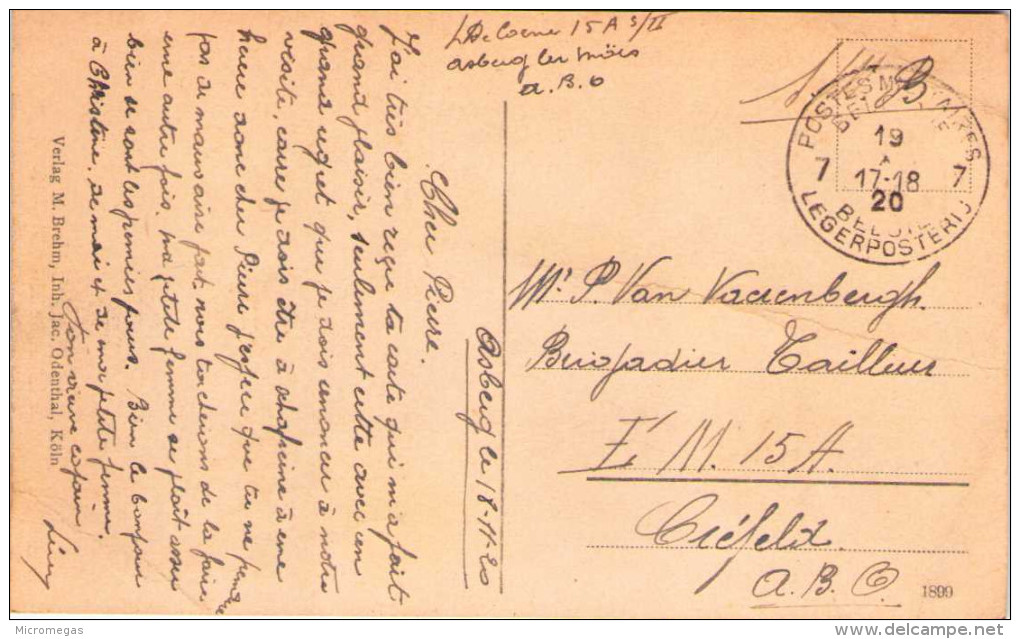 15 A 3/II
Asberg lez Moërs
A. B. O
S. M. B.
POSTES MILITAIRES
19
7 17-18 7
20
LEGERPOSTERIJ
Asberg le 18-11-20
Cher Pierre.
J'ai très bien reçu ta carte qui m'a fait
grand plaisir, seulement cette avec un
grand regret que je dois renoncer à notre
visite, carre je dois être à à une
heure donc cher Pierre j'espère que tu ne prendre
pas de mauvaise part, nous tacherions de la faire
une autre fois, ma petite femme se plait assez
bien se sont les premies jours. Bien le bonjour
à Christine, de moi et de ma petite femme.
Ton vieux copain
Mr P. Van Vaerenbergh.
Brigadier Tailleur
E. M. 15 A.
Créfeld.
A. B. O.
1899
Verlag M. Brehm, Inh. Jac. Odenthal, Köln
Micromegas